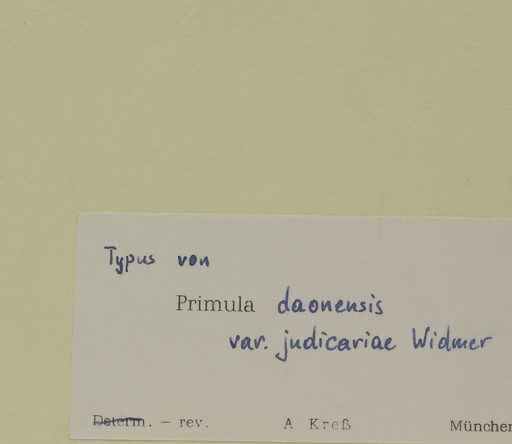 Typus von
Primula daonensis
var. judicariae Widmer
Determ. – rev. A Kreß München